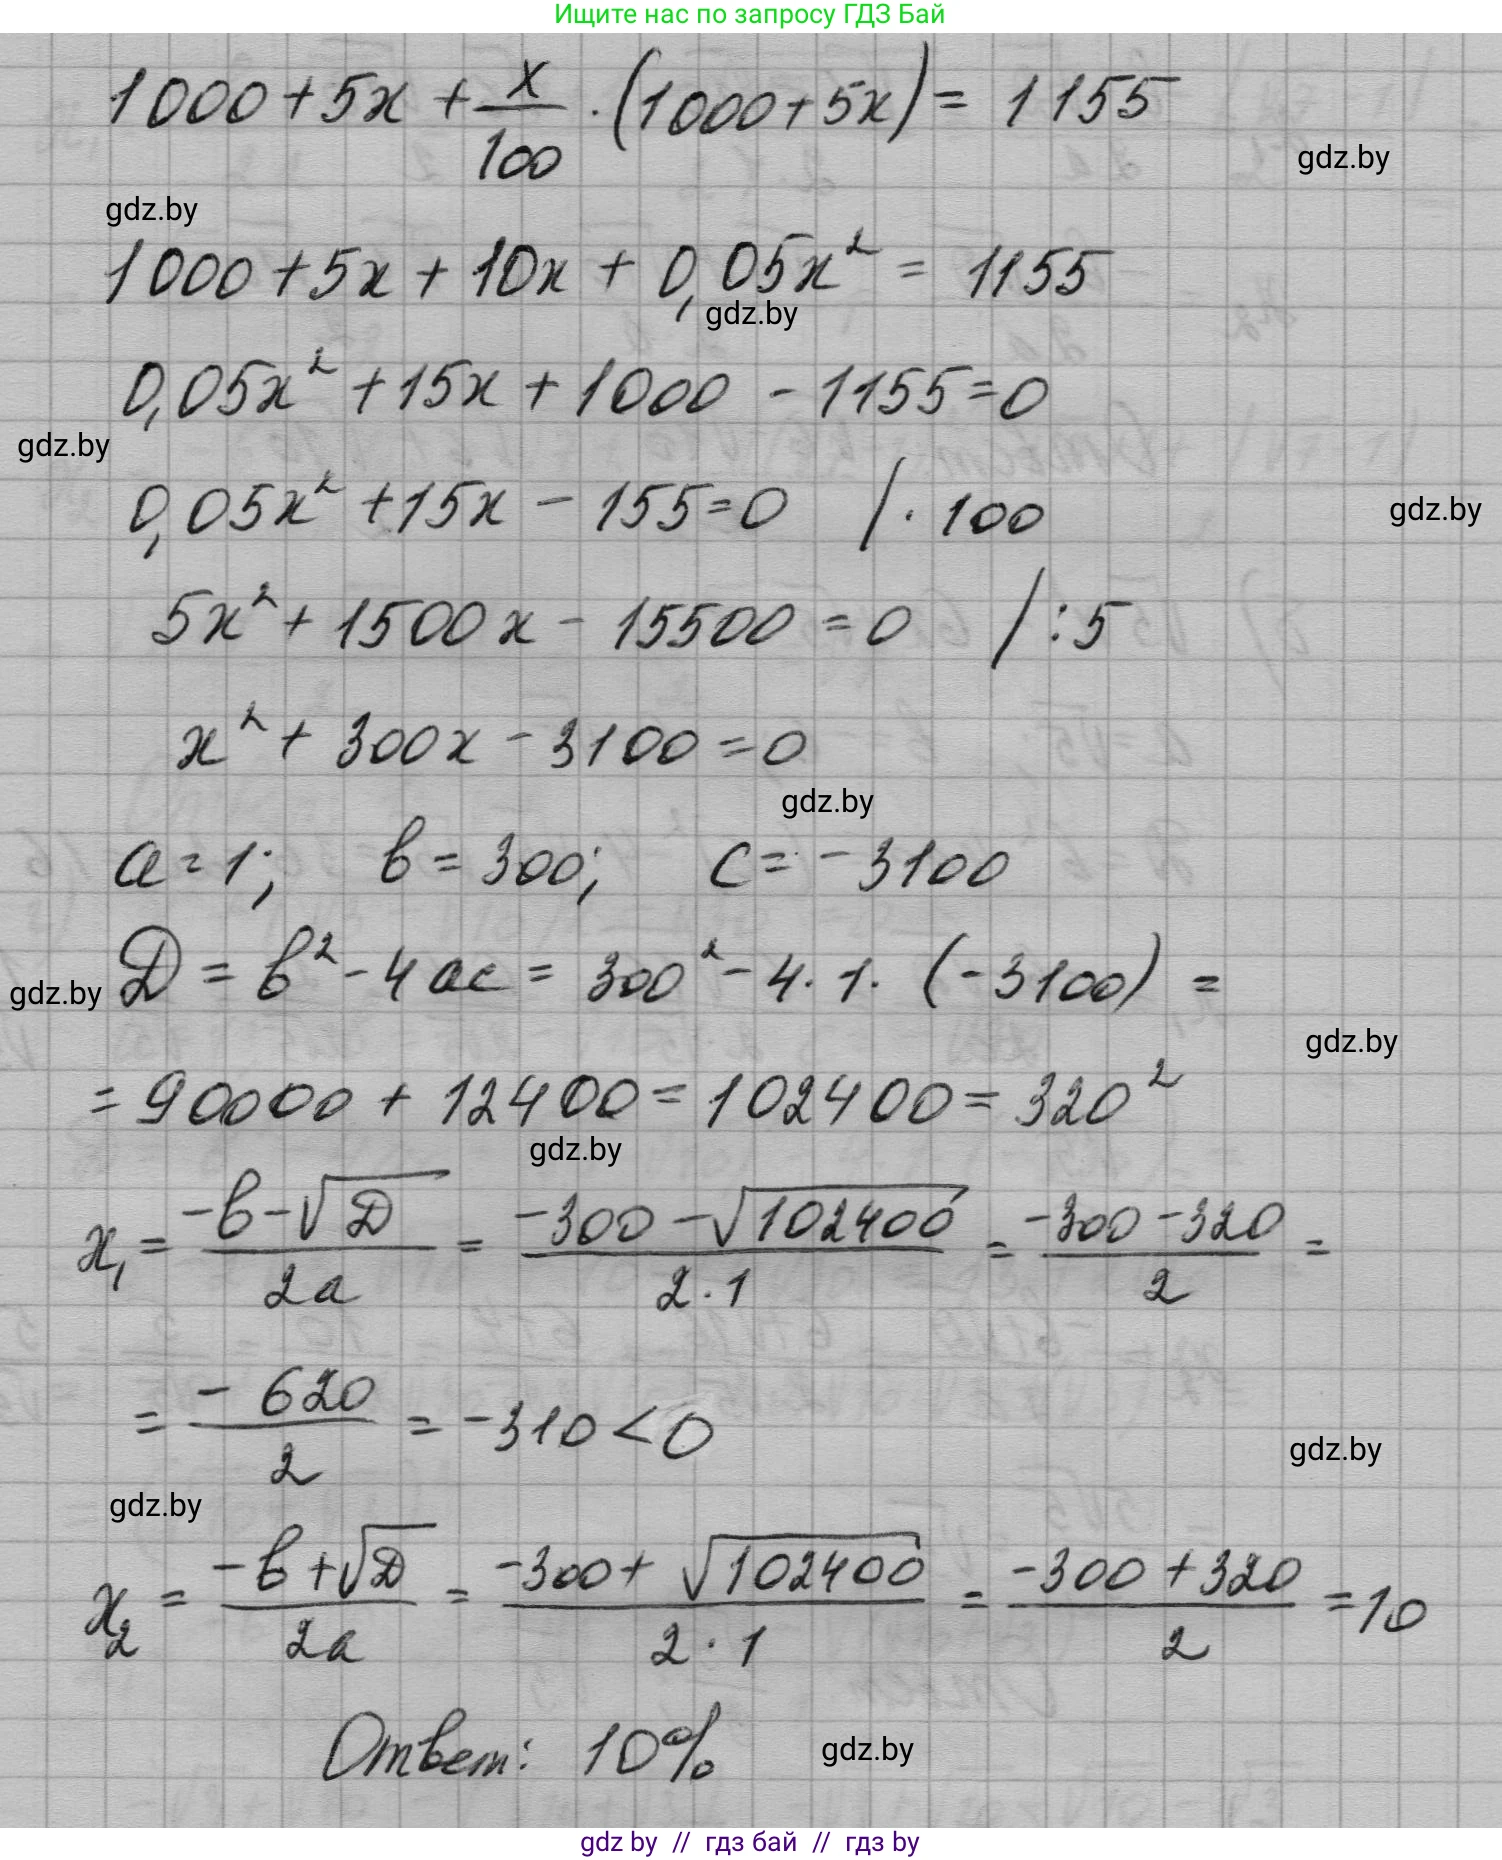 Ищите нас по запросу ГДЗ Бай
1000 + 5x + x/100 · (1000 + 5x) = 1155
gdz.by
gdz.by
1000 + 5x + 10x + 0,05x² = 1155
gdz.by
0,05x² + 15x + 1000 - 1155 = 0
gdz.by
0,05x² + 15x - 155 = 0 / · 100
gdz.by
5x² + 1500x - 15500 = 0 / : 5
x² + 300x - 3100 = 0
gdz.by
a = 1; b = 300; c = -3100
D = b² - 4ac = 300² - 4 · 1 · (-3100) =
gdz.by
gdz.by
= 90000 + 12400 = 102400 = 320²
gdz.by
x₁ = (-b - √D)/2a = (-300 - √102400)/(2 · 1) = (-300 - 320)/2 =
= -620/2 = -310 < 0
gdz.by
gdz.by
x₂ = (-b + √D)/2a = (-300 + √102400)/(2 · 1) = (-300 + 320)/2 = 10
Ответ: 10%
gdz.by
gdz by // гдз бай // гдз by